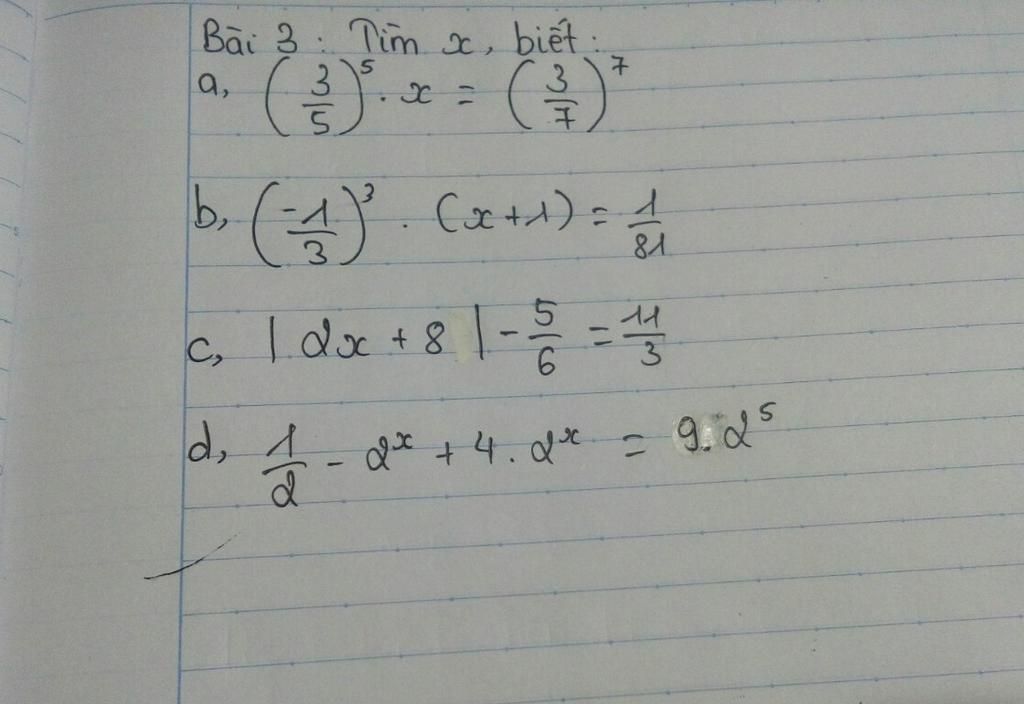 Bài 3 : Tìm x, biết :
a, (3/5)^5 . x = (3/7)^7
b, (-1/3)^3 . (x+1) = 1/81
c, |2x + 8| - 5/6 = 11/3
d, 1/2 - 2^x + 4 . 2^x = 9.2^5